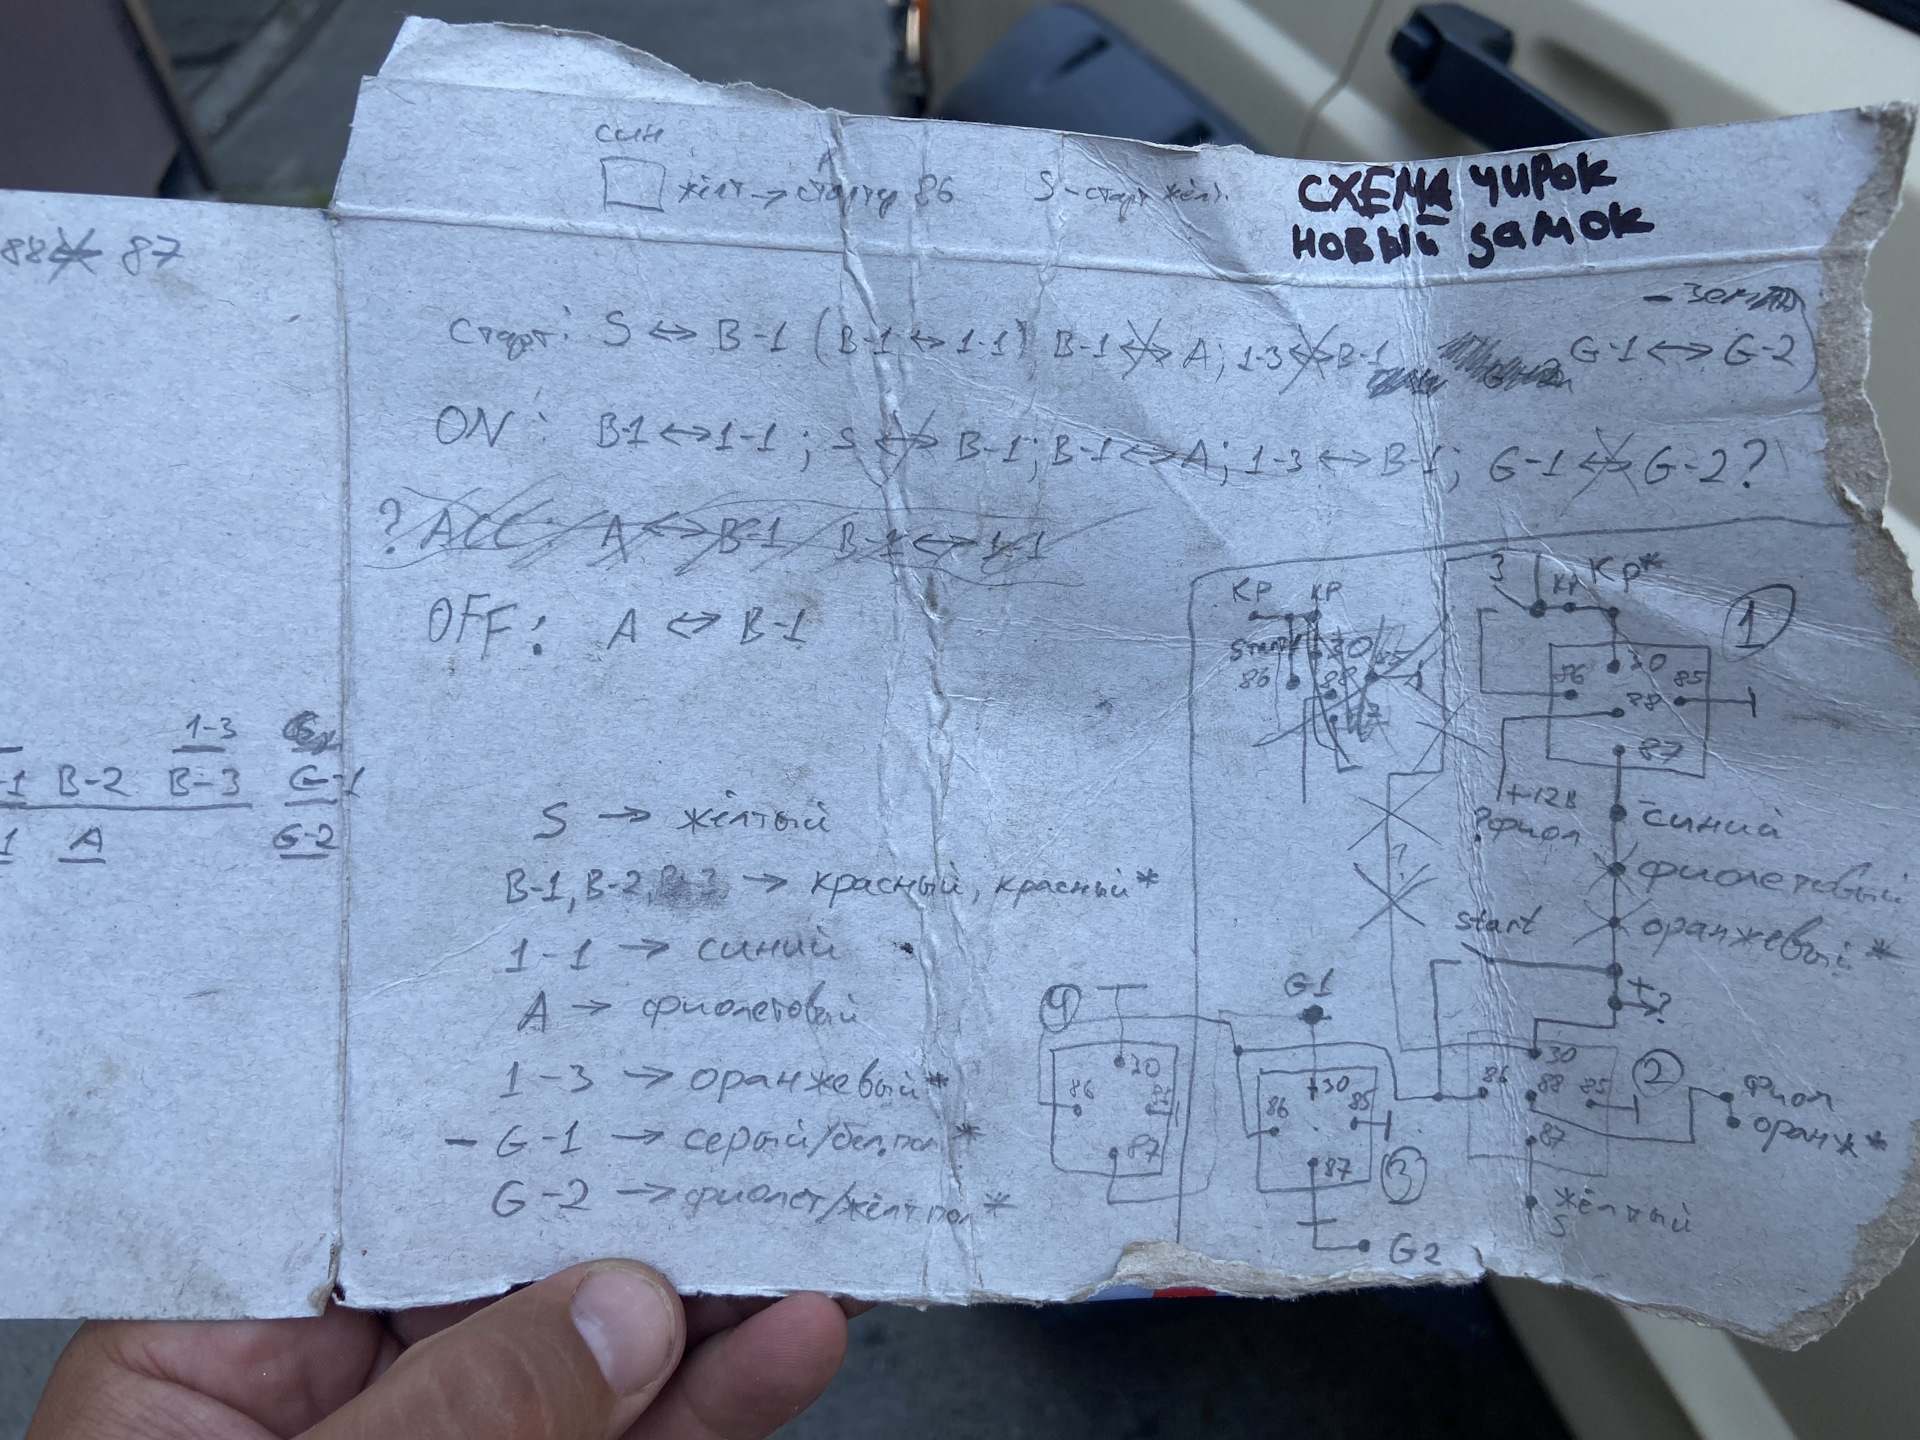 син
жёлт → стартер 86 S - старт жёлт.
СХЕМА ЧИРОК
НОВЫЙ ЗАМОК
88 ↔ 87
- Земля
Старт: S ↔ B-1 (B-1 ↔ 1-1) B-1 ↔ A; 1-3 ↔ B-1 G-1 ↔ G-2
ON: B1 ↔ 1-1; S ↔ B-1; B-1 ↔ A; 1-3 ↔ B-1; G-1 ↔ G-2?
? ACC: A ↔ B-1 B-1 ↔ 1-1
OFF: A ↔ B-1
1-3
B-2 B-3 G-1
A G-2
S → жёлтый
B-1, B-2, B-3 → красный, красный*
1-1 → синий
A → фиолетовый
1-3 → оранжевый*
- G-1 → серый/бел.пол*
G-2 → фиолет/жёлт пол*
КР КР
Start 30 85
86 88
3 КР КР*
1
30
86 85
88
87
+12В
? фиол
синий
фиолетовый
оранжевый*
start
+
?
?
4
30
86 85
87
G1
30
86 85
87
3
G2
30
86 88 85
87
2
фиол
оранж*
жёлтый
S